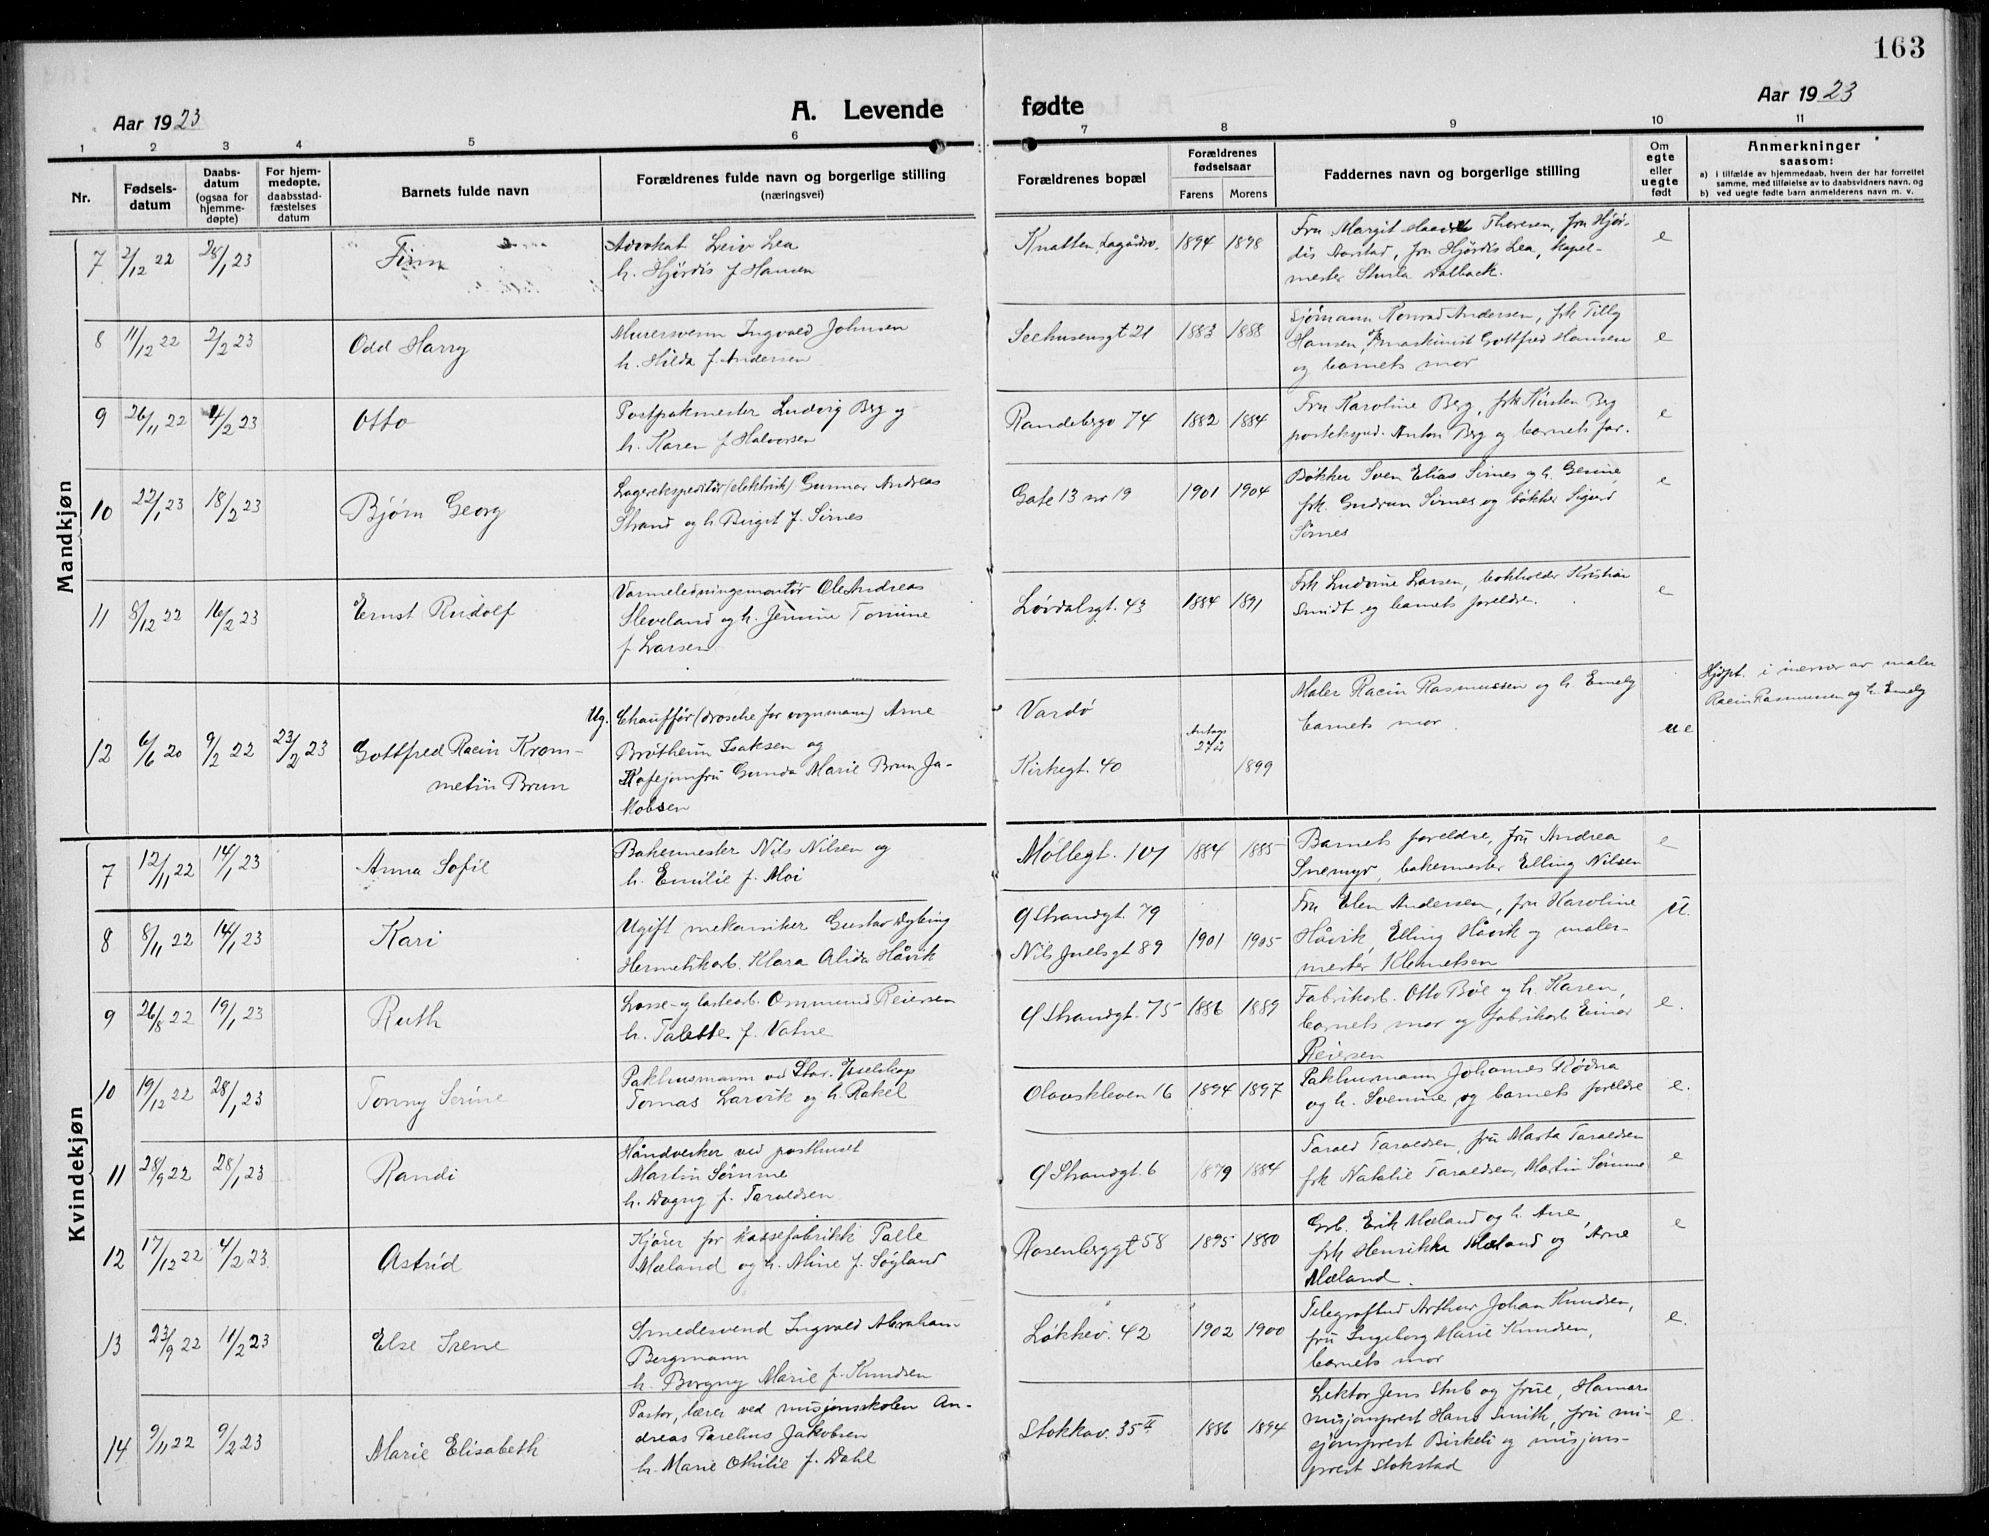 163
Aar 1923
A. Levende
fødte
Aar 1923
1 2 3 4 5 6 7 8 9 10 11
Nr.
Fødsels-
datum
Daabs-
datum
(ogsaa for
hjemme-
døpte)
For hjem-
medøpte,
daabsstad-
fæstelses
datum
Barnets fulde navn
Forældrenes fulde navn og borgerlige stilling
(næringsvei)
Forældrenes bopæl
Forældrenes
fødselsaar
Farens Morens
Faddernes navn og borgerlige stilling
Om
egte
eller
uegte
født
Anmerkninger
saasom:
a) i tilfælde av hjemmedaab, hvem der har forrettet
samme, med tilføielse av to daabsvidners navn, og
b) ved uegte fødte barn anmelderens navn m. v.
Mandkjøn
7 2/12 22 28/1 23 Finn
Advokat Leiv Lea
h. Hjørdis f. Hansen
Knatten, Lagårdsv. 1894 1898
Fru Margit Thoresen, fru Hjør-
dis Aarstad, fru Hjørdis Lea, kapel-
mester Sturla Dalback.
e
8 11/12 22 2/2 23 Odd Harry
Murersvenn Ingvald Johnsen
h. Hilda f. Andersen
Seehusensgt 21 1883 1888
Sjømann Konrad Andersen, frk Tilly
Hansen, maskinist Gottfred Hansen
og barnets mor
e
9 26/11 22 4/2 23 Otto
Postpakmester Ludvig Berg og
h. Karen f. Halvorsen
Randebergv 74 1882 1884
Fru Karoline Berg, frk Kirsten Berg
postekspd. Anton Berg og barnets far.
e
10 22/1 23 18/2 23 Bjørn Georg
Lagerekspeditør (elektrik) Gunnar Andreas
Strand og h. Birgit f. Sirnes
Gate 13 nr 19 1901 1904
Bøkker Sven Elias Sirnes og h. Gerine,
frk. Gudrun Sirnes og bøkker Sigurd
Sirnes
e
11 8/12 22 16/2 23 Ernst Rudolf
Varmeledningsmontør Ole Andreas
Sleveland og h. Jennine Tomine
f Larsen
Løvdalsgt. 43 1884 1891
Frk Ludvine Larsen, bokholder Kristian
Smidt og barnets foreldre.
e
12 6/6 20 9/2 22 23/2 23 Gottfred Racin Krom-
metin Brun
Ug. Chauffør (drosche for vognmann) Arne
Brotheim Isaksen og
Kafejomfru Gunda Marie Brun Ja-
kobsen
Vardø
Kirkegt. 40
Antag. 27 år
1899
Maler Racin Rasmussen og h. Emely
barnets mor
ue
Hjdpt. i nærvær av maler
Racin Rasmussen og h. Emely
Kvindekjøn
7 12/11 22 14/1 23 Anna Sofie
Bakermester Nils Nilsen og
h. Emilie f. Moi
Møllegt. 101 1884 1885
Barnets foreldre, fru Andrea
Snemyr, bakermester Elling Nilsen
e
8 8/11 22 14/1 23 Kari
Ugift mekaniker Gustav Dybing
Hermetikarb. Klara Alida Håvik
Ø Strandgt. 79
Nils Juelsgt 89 1901 1905
Fru Elen Andersen, fru Karoline
Håvik, Elling Håvik og maler-
mester Klemetsen
u.
9 26/8 22 19/1 23 Ruth
Losse- og lastearb. Ommund Reiersen
h. Talette f. Vatne
Ø Strandgt. 75 1886 1889
Fabrikarb. Otto Bøe og h. Karen,
barnets mor og fabrikarb Einar
Reiersen
e.
10 19/12 22 28/1 23 Tonny Serine
Pakhusmann ved Stav. /selskap
Tomas Larvik og h. Rakel
Olavskleven 16 1894 1897
Pakhusmann Johannes Rødna
og h. Svenine, og barnets foreldre
e.
11 28/9 22 28/1 23 Randi
Håndverker ved posthuset
Martin Sømme
h. Dagny f. Taraldsen
Ø Strandgt. 6 1879 1884
Tarald Taraldsen, fru Marta Taraldsen
frk Natalie Taraldsen, Martin Sømme
e
12 17/12 22 4/2 23 Astrid
Kjører for kassefabrikk Palle
Mæland og h. Aline f. Søyland
Rosenberggt 58 1895 1880
Grb. Erik Mæland og h. Ane,
frk Henrikka Mæland og Arne
Mæland.
e
13 23/9 22 11/2 23 Else Irene
Smedesvend Ingvald Abraham
Bergmann
h. Borgny Marie f. Knudsen
Løkkev. 42 1902 1900
Telegrafbud Arthur Johan Knudsen,
fru Ingeborg Marie Knudsen,
barnets mor
e.
14 9/11 22 9/2 23 Marie Elisabeth
Pastor, lærer ved misjonsskolen An-
dreas Parelius Jakobsen
h. Marie Otilie f. Dahl
Stokkav. 35 II 1886 1894
Lektor Jens Stub og frue, Hamars
misjonsprest Hans Smith, fru mi-
sjonsprest Birkeli og misjons-
prest Stokstad
e.